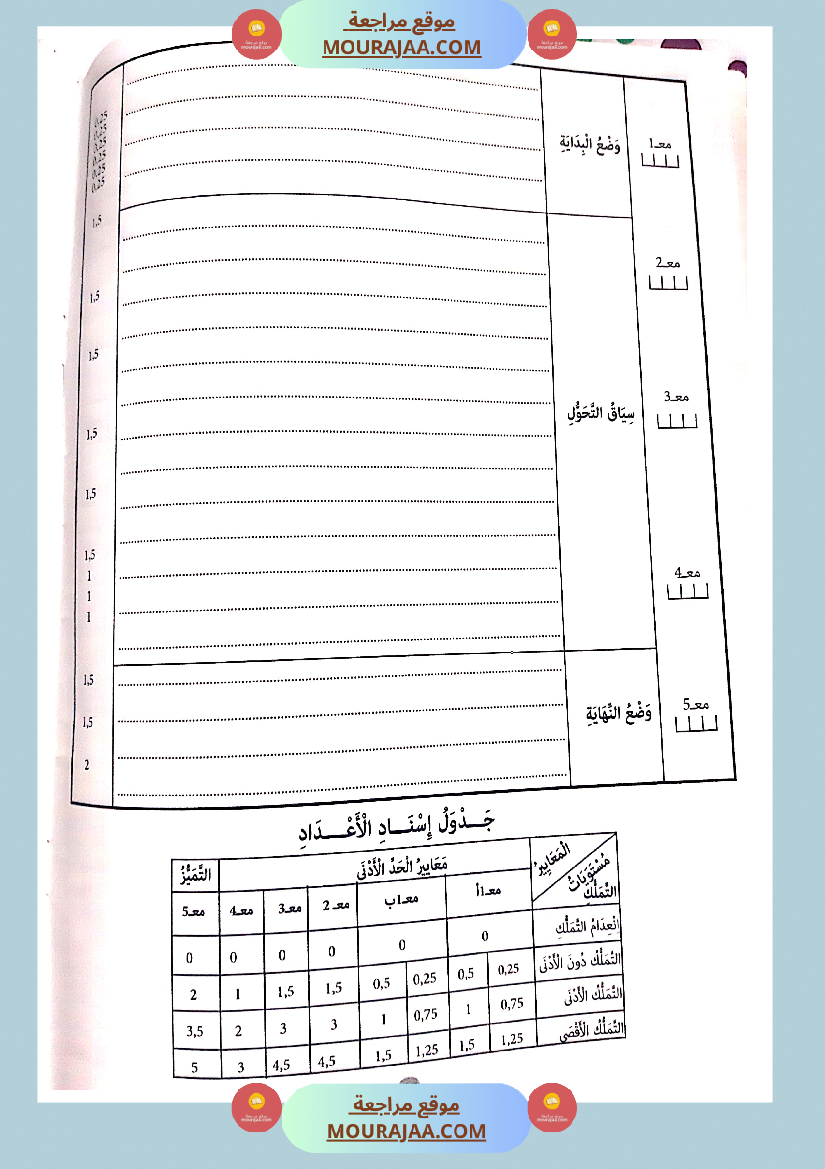 موقع مراجعة
MOURAJAA.COM
معـ1
وَضْعُ الْبِدَايَةِ
1,5
معـ2
1,5
1,5
معـ3
سِيَاقُ التَّحَوُّلِ
1,5
1,5
1,5
معـ4
1
1
1
1,5
معـ5
وَضْعُ النِّهَايَةِ
1,5
2
جَـــدْوَلُ إِسْنَـــادِ الْأَعْـــدَادِ
الْمَعَايِيرُ
مُسْتَوَيَاتُ التَّمَلُّكِ
مَعَايِيرُ الْحَدِّ الْأَدْنَى
التَّمَيُّزُ
معـ1أ معـ1ب معـ2 معـ3 معـ4 معـ5
اِنْعِدَامُ التَّمَلُّكِ 0 0 0 0 0 0
التَّمَلُّكُ دُونَ الْأَدْنَى 0,25 0,5 0,25 0,5 1,5 1,5 1 2
التَّمَلُّكُ الْأَدْنَى 0,75 1 0,75 1 3 3 2 3,5
التَّمَلُّكُ الْأَقْصَى 1,25 1,5 1,25 1,5 4,5 4,5 3 5
موقع مراجعة
MOURAJAA.COM